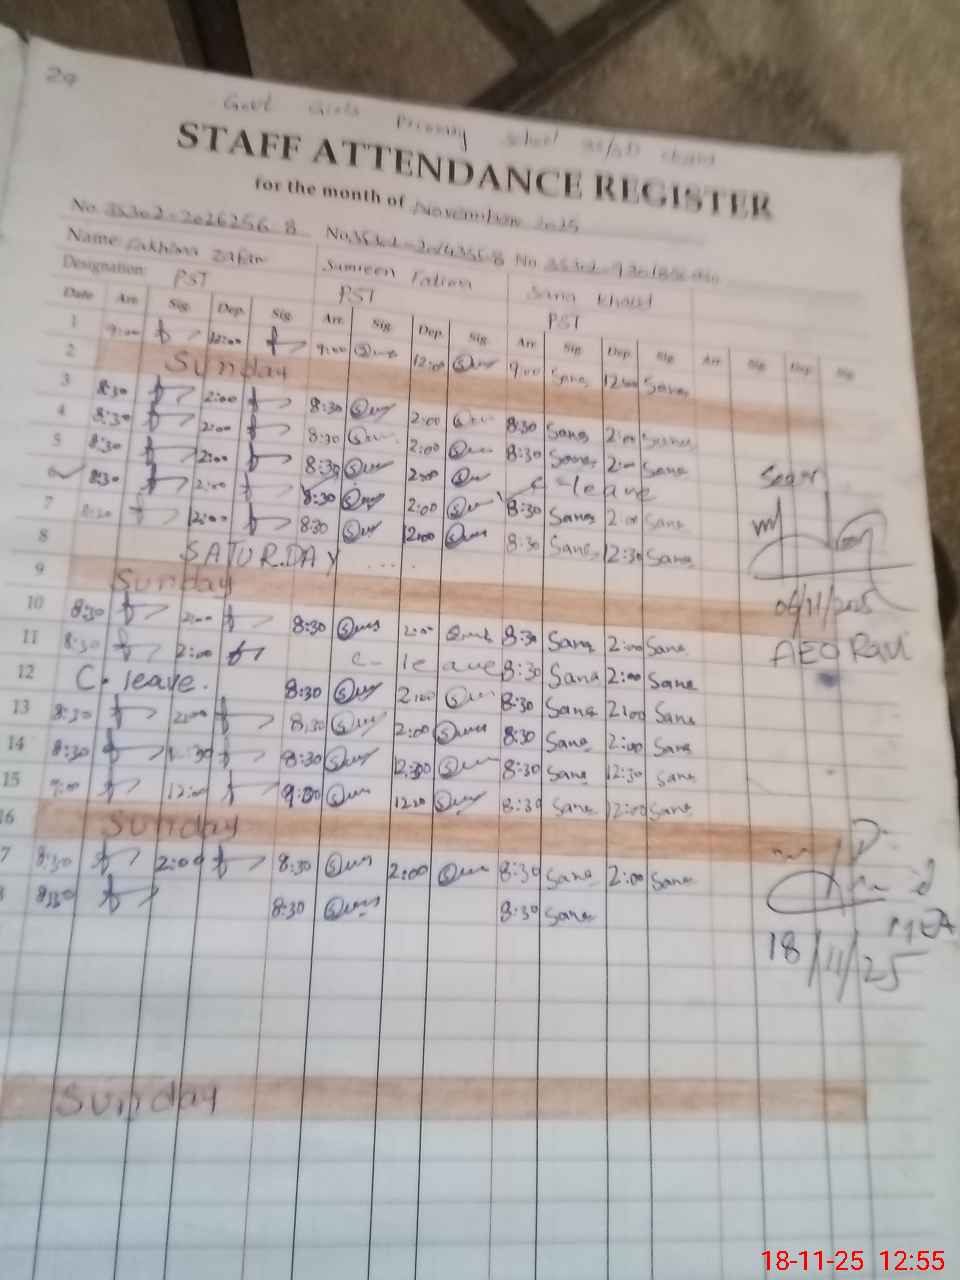 29
Govt Girls Primary School
STAFF ATTENDANCE REGISTER
for the month of November 2025
No. 35302-2026256-8 No. No.
Name: Zafar Sumreen Fatima Sana Khalid
Designation: PST PST PST
Date Arr. Sig. Dep. Sig. Arr. Sig. Dep. Sig. Arr. Sig. Dep. Sig. Arr. Sig. Dep. Sig.
1 9:00 12:00 9:00 12:00 9:00 Sana 12:00 Sana
2 Sunday
3 8:30 2:00 8:30 2:00 8:30 Sana 2:00 Sana
4 8:30 2:00 8:30 2:00 8:30 Sana 2:00 Sana
5 8:30 2:00 8:30 2:00 C-leave
8:30 2:00 8:30 2:00 8:30 Sana 2:00 Sana
7 8:30 12:00 8:30 12:00 8:30 Sana 12:30 Sana
8 SATURDAY ....
9 Sunday
10 8:30 2:00 8:30 2:00 8:30 Sana 2:00 Sana
11 8:30 2:00 C-leave 8:30 Sana 2:00 Sana
12 C. leave. 8:30 2:00 8:30 Sana 2:00 Sana
13 8:30 2:00 8:30 2:00 8:30 Sana 2:00 Sana
14 8:30 12:30 8:30 12:30 8:30 Sana 12:30 Sana
15 9:00 12:00 9:00 12:00 8:30 Sana 12:00 Sana
16 Sunday
7 8:30 2:00 8:30 2:00 8:30 Sana 2:00 Sana
8:30 8:30 8:30 Sana
Sunday
Seen
06/11/2025
AEO Ravi
MEA
18/11/25
18-11-25 12:55